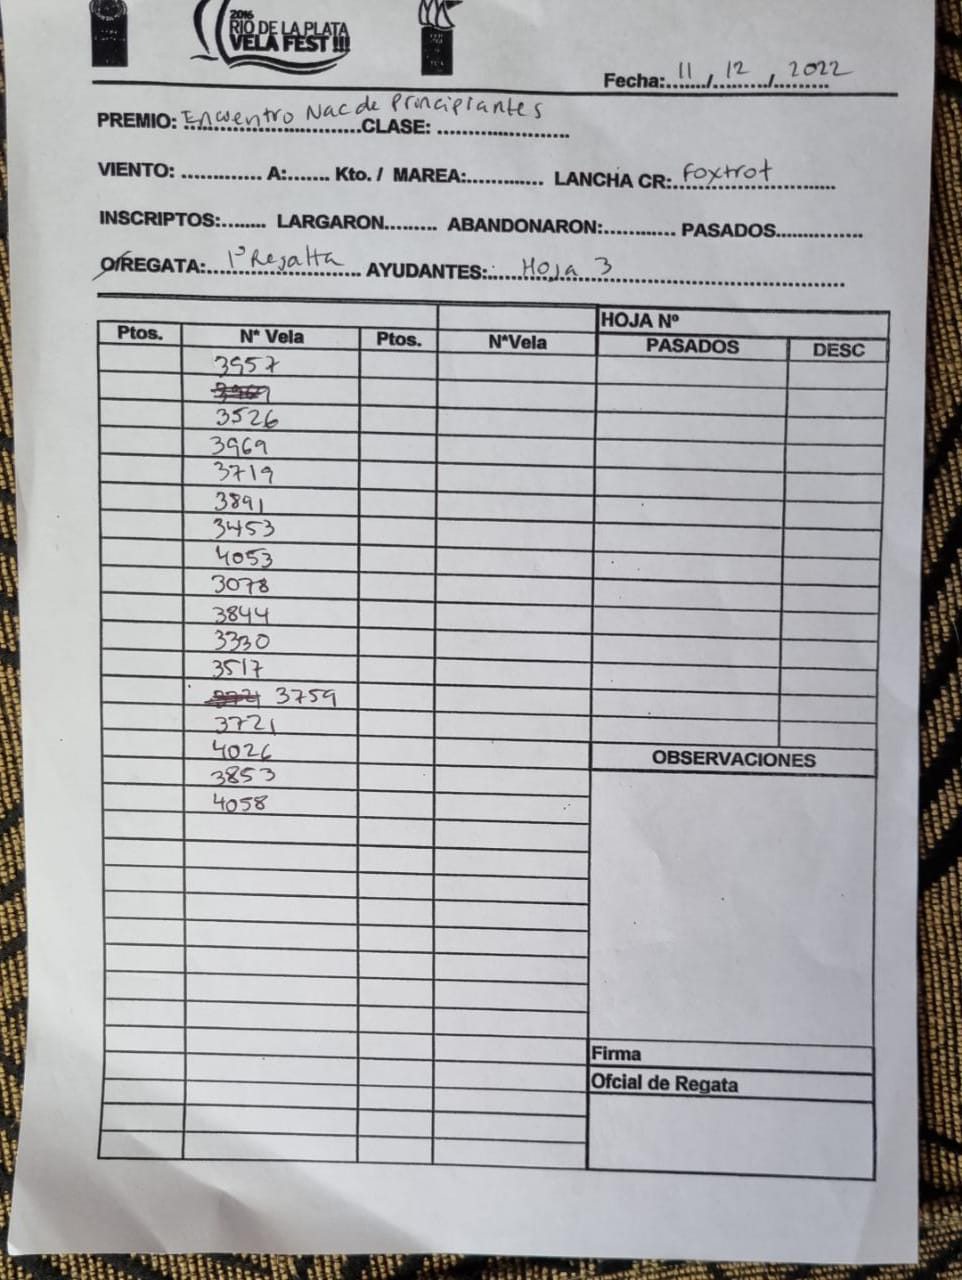 2016
RIO DE LA PLATA
VELA FEST !!!
Fecha:......../........./......... 11 12 2022
PREMIO: Encuentro Nac de Principiantes CLASE: ....................
VIENTO: ............. A:....... Kto. / MAREA:............ LANCHA CR: Foxtrot
INSCRIPTOS:....... LARGARON......... ABANDONARON:............ PASADOS..............
O/REGATA: 1º Regatta AYUDANTES: Hoja 3
HOJA Nº
Ptos. Nª Vela Ptos. NªVela PASADOS DESC
3957
3969
3526
3969
3719
3891
3453
4053
3078
3844
3330
3517
3721 3759
3721
4026
OBSERVACIONES
3853
4058
Firma
Ofcial de Regata